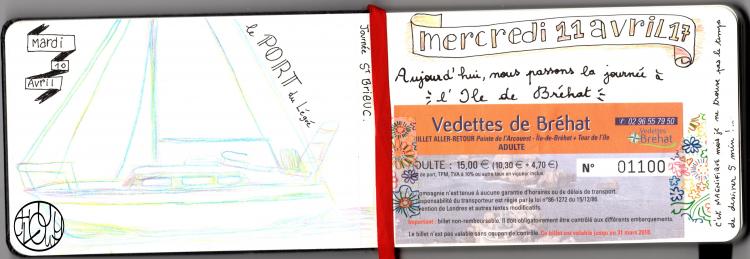 Mardi
10
Avril
le PORT du Légué
Journée St BRIEUC.
mercredi 11 avril 17
Aujourd'hui, nous passons la journée à
l'Ile de Bréhat
Vedettes de Bréhat
02 96 55 79 50
BILLET ALLER-RETOUR Pointe de l'Arcouest - Ile-de-Bréhat + Tour de l'île
ADULTE
Vedettes
Bréhat
DULTE : 15,00 € (10,30 € + 4,70 €)
de port, TPM, TVA à 10% ou autre taux en vigueur inclus.
N° 01100
compagnie n'est tenue à aucune garantie d'horaires ou de délais de transport.
responsabilité du transporteur est régie par la loi n°86-1272 du 15/12/86.
vention de Londres et autres textes modificatifs.
Important : billet non-remboursable. Il doit obligatoirement être contrôlé aux différents embarquements.
Le billet n'est pas valable sans coupon de contrôle. Ce billet est valable jusqu'au 31 mars 2018.
c'est MAGNIFIQUE mais je ne trouve pas le temps
de dessiner 5 min !..